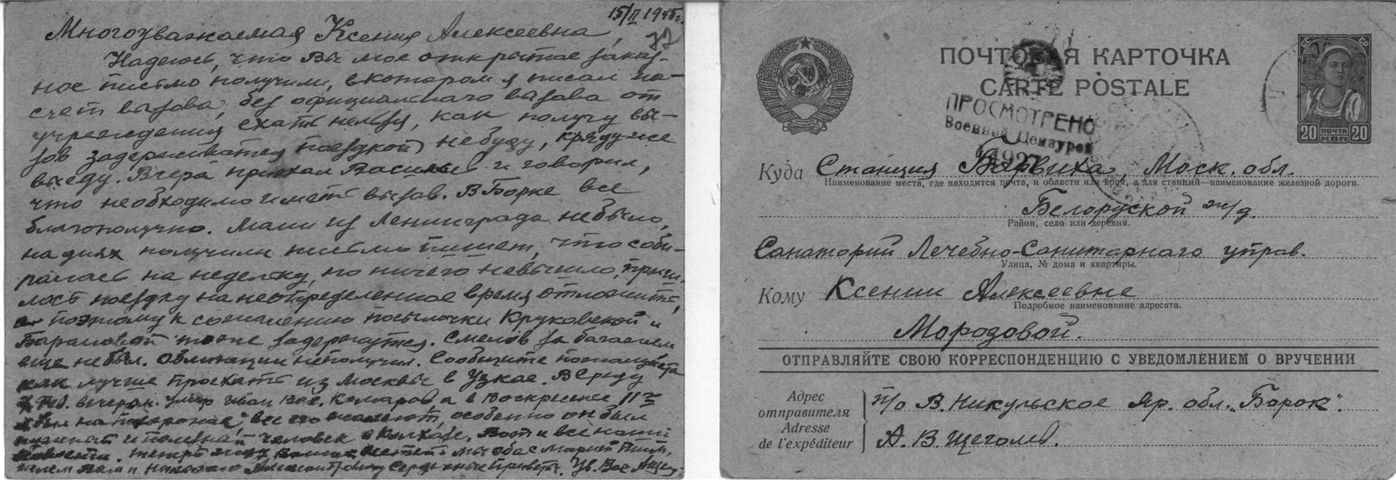 15/II 1945г.
Многоуважаемая Ксения Алексеевна,
Надеюсь, что Вы мое открытое заказ-
ное письмо получили, в котором я писал на-
счет вызова, без официального вызова от
учреждения ехать нельзя, как получу вы-
зов задерживаться поездкой небуду, кряду-же
выеду. Вчера приехал Василий и говорил,
что необходимо иметь вызов. В Борке все
благополучно. Мани из Ленинграда небыло,
на днях получили письмо пишет, что соби-
ралась на недельку, но ничего невышло, приш-
лось поездку на неопределенное время отложить,
поэтому к сожалению посылочки Круковской и
тоже задержутся. Смелов за багажем
еще небыл. Облигации неполучил. Сообщите пожалуйста
как лучше проехать из Москвы в Узкое. В Среду
вечером умер Иван Вас. Комаров а в Воскресенье 11
был на похоронах, все его жалеют, особенно он был
и полезный человек в Колхозе. Вот и все наши
Вам и Николаю Александровичу Сердечные приветы. Ув. Вас
ПОЧТОВАЯ КАРТОЧКА
CARTE POSTALE
ПРОСМОТРЕНО
Военной Цензурой
ПОЧТА
20 КОП 20
Куда Станция Барвиха, Моск. обл.
Наименование места, где находится почта, и области или края, а для станций—наименование железной дороги.
Белоруской ж/д.
Район, село или деревня.
Санаторий Лечебно-Санитарного управ.
Улица, № дома и квартиры.
Кому Ксении Алексеевне
Подробное наименование адресата.
Морозовой.
ОТПРАВЛЯЙТЕ СВОЮ КОРРЕСПОНДЕНЦИЮ С УВЕДОМЛЕНИЕМ О ВРУЧЕНИИ
Адрес отправителя
Adresse de l'expéditeur
п/о В. Никульское Яр. обл. „Борок".
А. В. Щеголев.